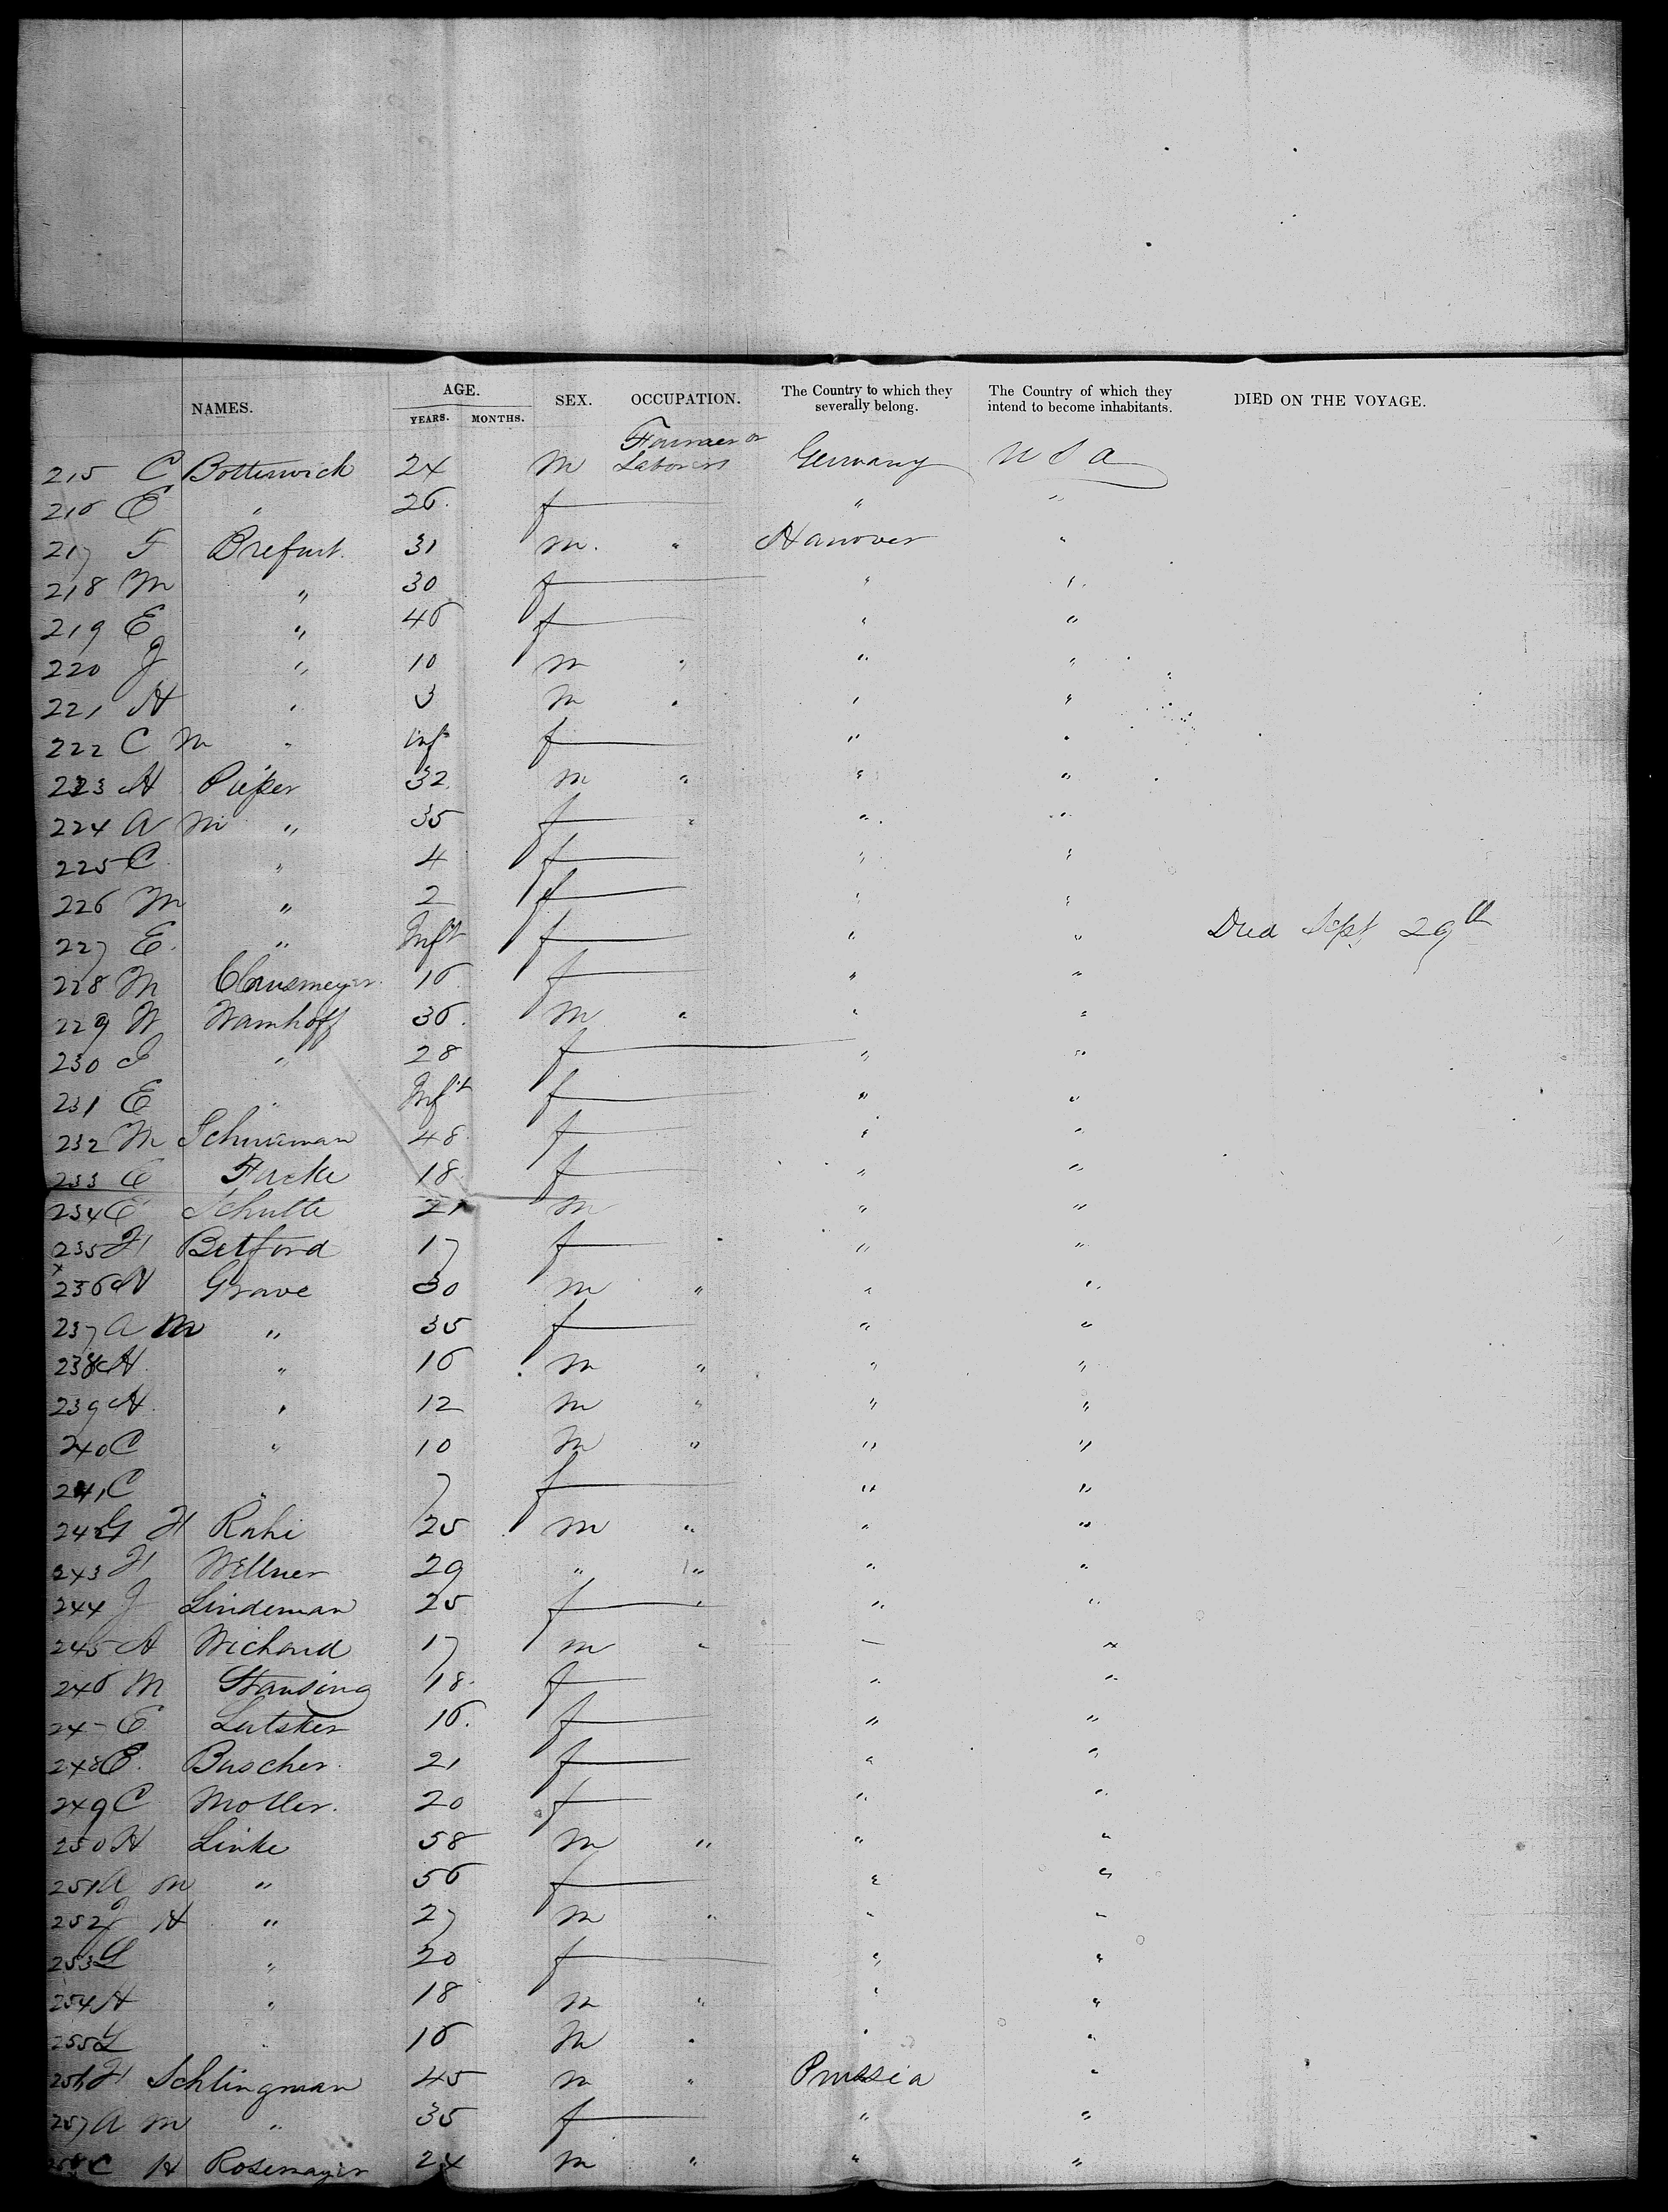 NAMES. AGE. SEX. OCCUPATION. The Country to which they severally belong. The Country of which they intend to become inhabitants. DIED ON THE VOYAGE.
YEARS. MONTHS.
215 C Botterwick 24 m Farmer or Laborers Germany U S A
216 E " 26. f " "
217 F Brefurt. 31 m. " Hanover "
218 M " 30 f " "
219 E " 46 f " "
220 J " 10 m " " "
221 H " 3 m " " "
222 C M " inft f " "
223 H Pieper 32 m " " "
224 A M " 35 f " " "
225 C " 4 f " "
226 M " 2 f " "
227 E. " Inft f " " Died Sept 29th
228 M Clausmeyer. 16 f " "
229 W Wamhoff 36. m " " "
230 I " 28 f " "
231 E " Inft f " "
232 M Schurman 48. f " "
233 E Fucke 18. f " "
234 E Schulte 21 m " "
235 H Betford 17 f " "
236 H Grave 30 m " " "
237 A M " 35 f " "
238 H " 16 m " " "
239 H. " 12 m " " "
240 C " 10 m " " "
241 C " 7 f " "
242 G H Rahi 25 m " " "
243 H Wellner 29 " " " "
244 J Lindeman 25 f " " "
245 A Wichard 17 m " " "
246 M Stansing 18. f " "
247 E Lutsker 16. f " "
248 E. Buscher. 21 f " "
249 C Moller. 20 f " "
250 H Linke 58 m " " "
251 A M " 56 f " "
252 J H " 27 m " " "
253 L " 20 f " "
254 H " 18 m " " "
255 L " 16 m " " "
256 H Schlingman 45 m " Prussia "
257 A M " 35 f " "
258 C H Rosemayer 24 m " " "